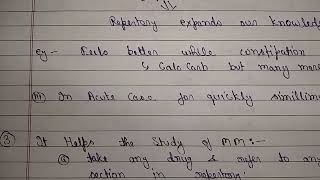 Repertory expands our knowled
eg - Feels better while constipation
↳ Calc Carb but many more
(iii) In Acute Case for quickly simillim
③ It Helps the Study of MM:-
ⓐ take any drug & refer to any
section in repertory